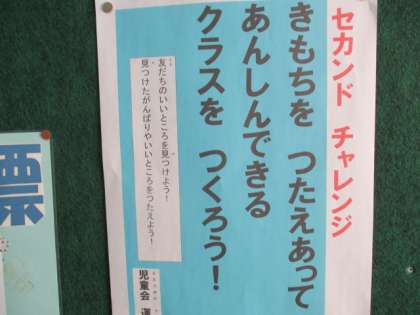 セカンド チャレンジ
きもちを つたえあって
あんしんできる
クラスを つくろう!
友だちのいいところを見つけよう!
見つけたがんばりやいいところをつたえよう!
児童会 運
標